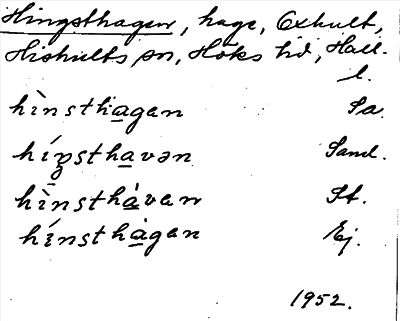 Hingsthagen, hage, Oxhult,
Hishults sn, Höks hd, Hall.
l.
hìnsthàgan Sa.
híŋsthavən Sand.
hìnsthàvan St.
hínsthàgen Ej.
1952.